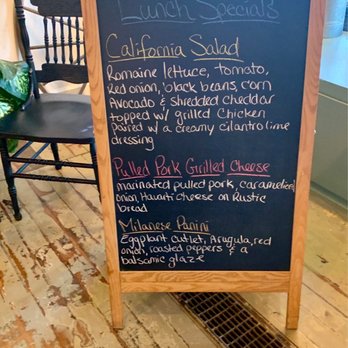 Lunch Specials
California Salad
Romaine lettuce, tomato,
Red onion, black beans, corn
Avocado & shredded cheddar
topped w/ grilled Chicken
paired w/ a creamy cilantro lime
dressing
Pulled Pork Grilled Cheese
marinated pulled pork, caramelized
onion, Havarti cheese on Rustic
bread
Milanese Panini
Eggplant cutlet, Arugula, red
onion, roasted peppers & a
balsamic glaze